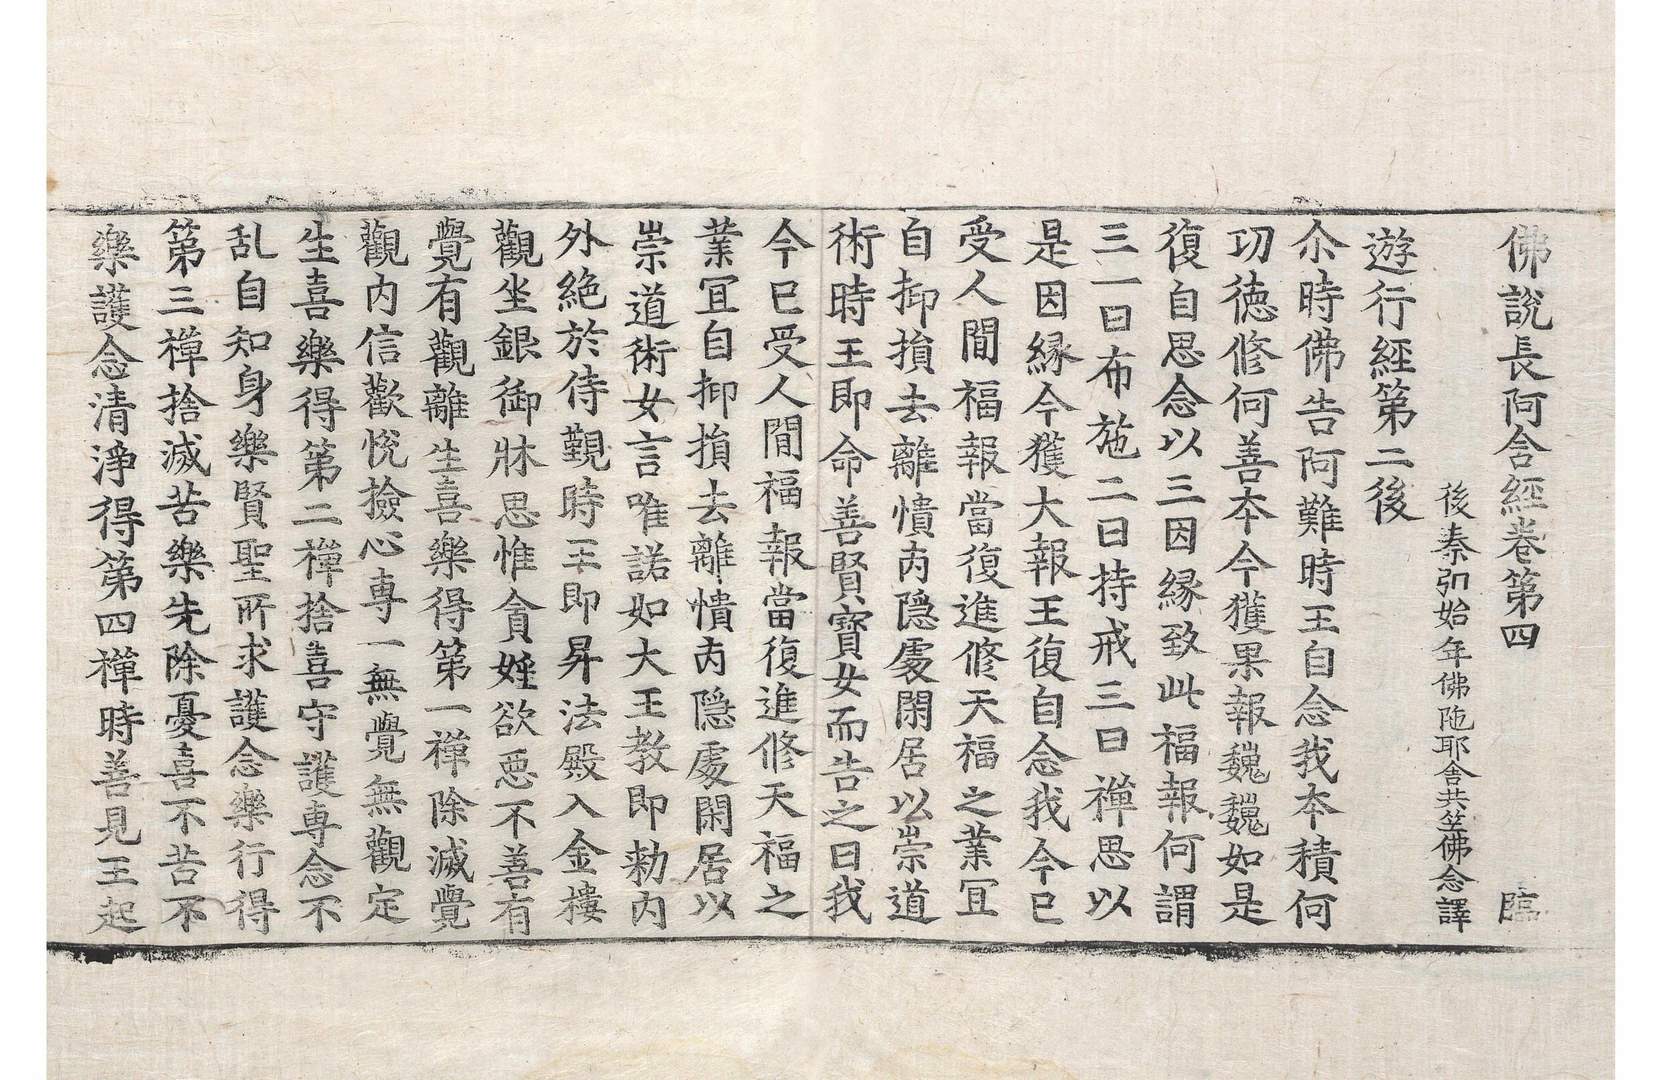 佛說長阿含經卷第四 臨
後秦弘始年佛陁耶舍共竺佛念譯
遊行經第二後
尒時佛告阿難時王自念我本積何
功德修何善本今獲果報巍巍如是
復自思念以三因縁致此福報何謂
三一曰布施二曰持戒三曰禪思以
是因縁今獲大報王復自念我今已
受人間福報當復進修天福之業冝
自抑損去離憒丙隱處閑居以崇道
術時王即命善賢寶女而告之曰我
今已受人間福報當復進修天福之
業冝自抑損去離憒丙隱處閑居以
崇道術女言唯諾如大王教即勑內
外絶於侍覲時王即昇法殿入金樓
觀坐銀御牀思惟貪婬欲惡不善有
覺有觀離生喜樂得第一禪除滅覺
觀內信歡悅撿心專一無覺無觀定
生喜樂得第二禪捨喜守護專念不
乱自知身樂賢聖所求護念樂行得
第三禪捨滅苦樂先除憂喜不苦不
樂護念清淨得第四禪時善見王起